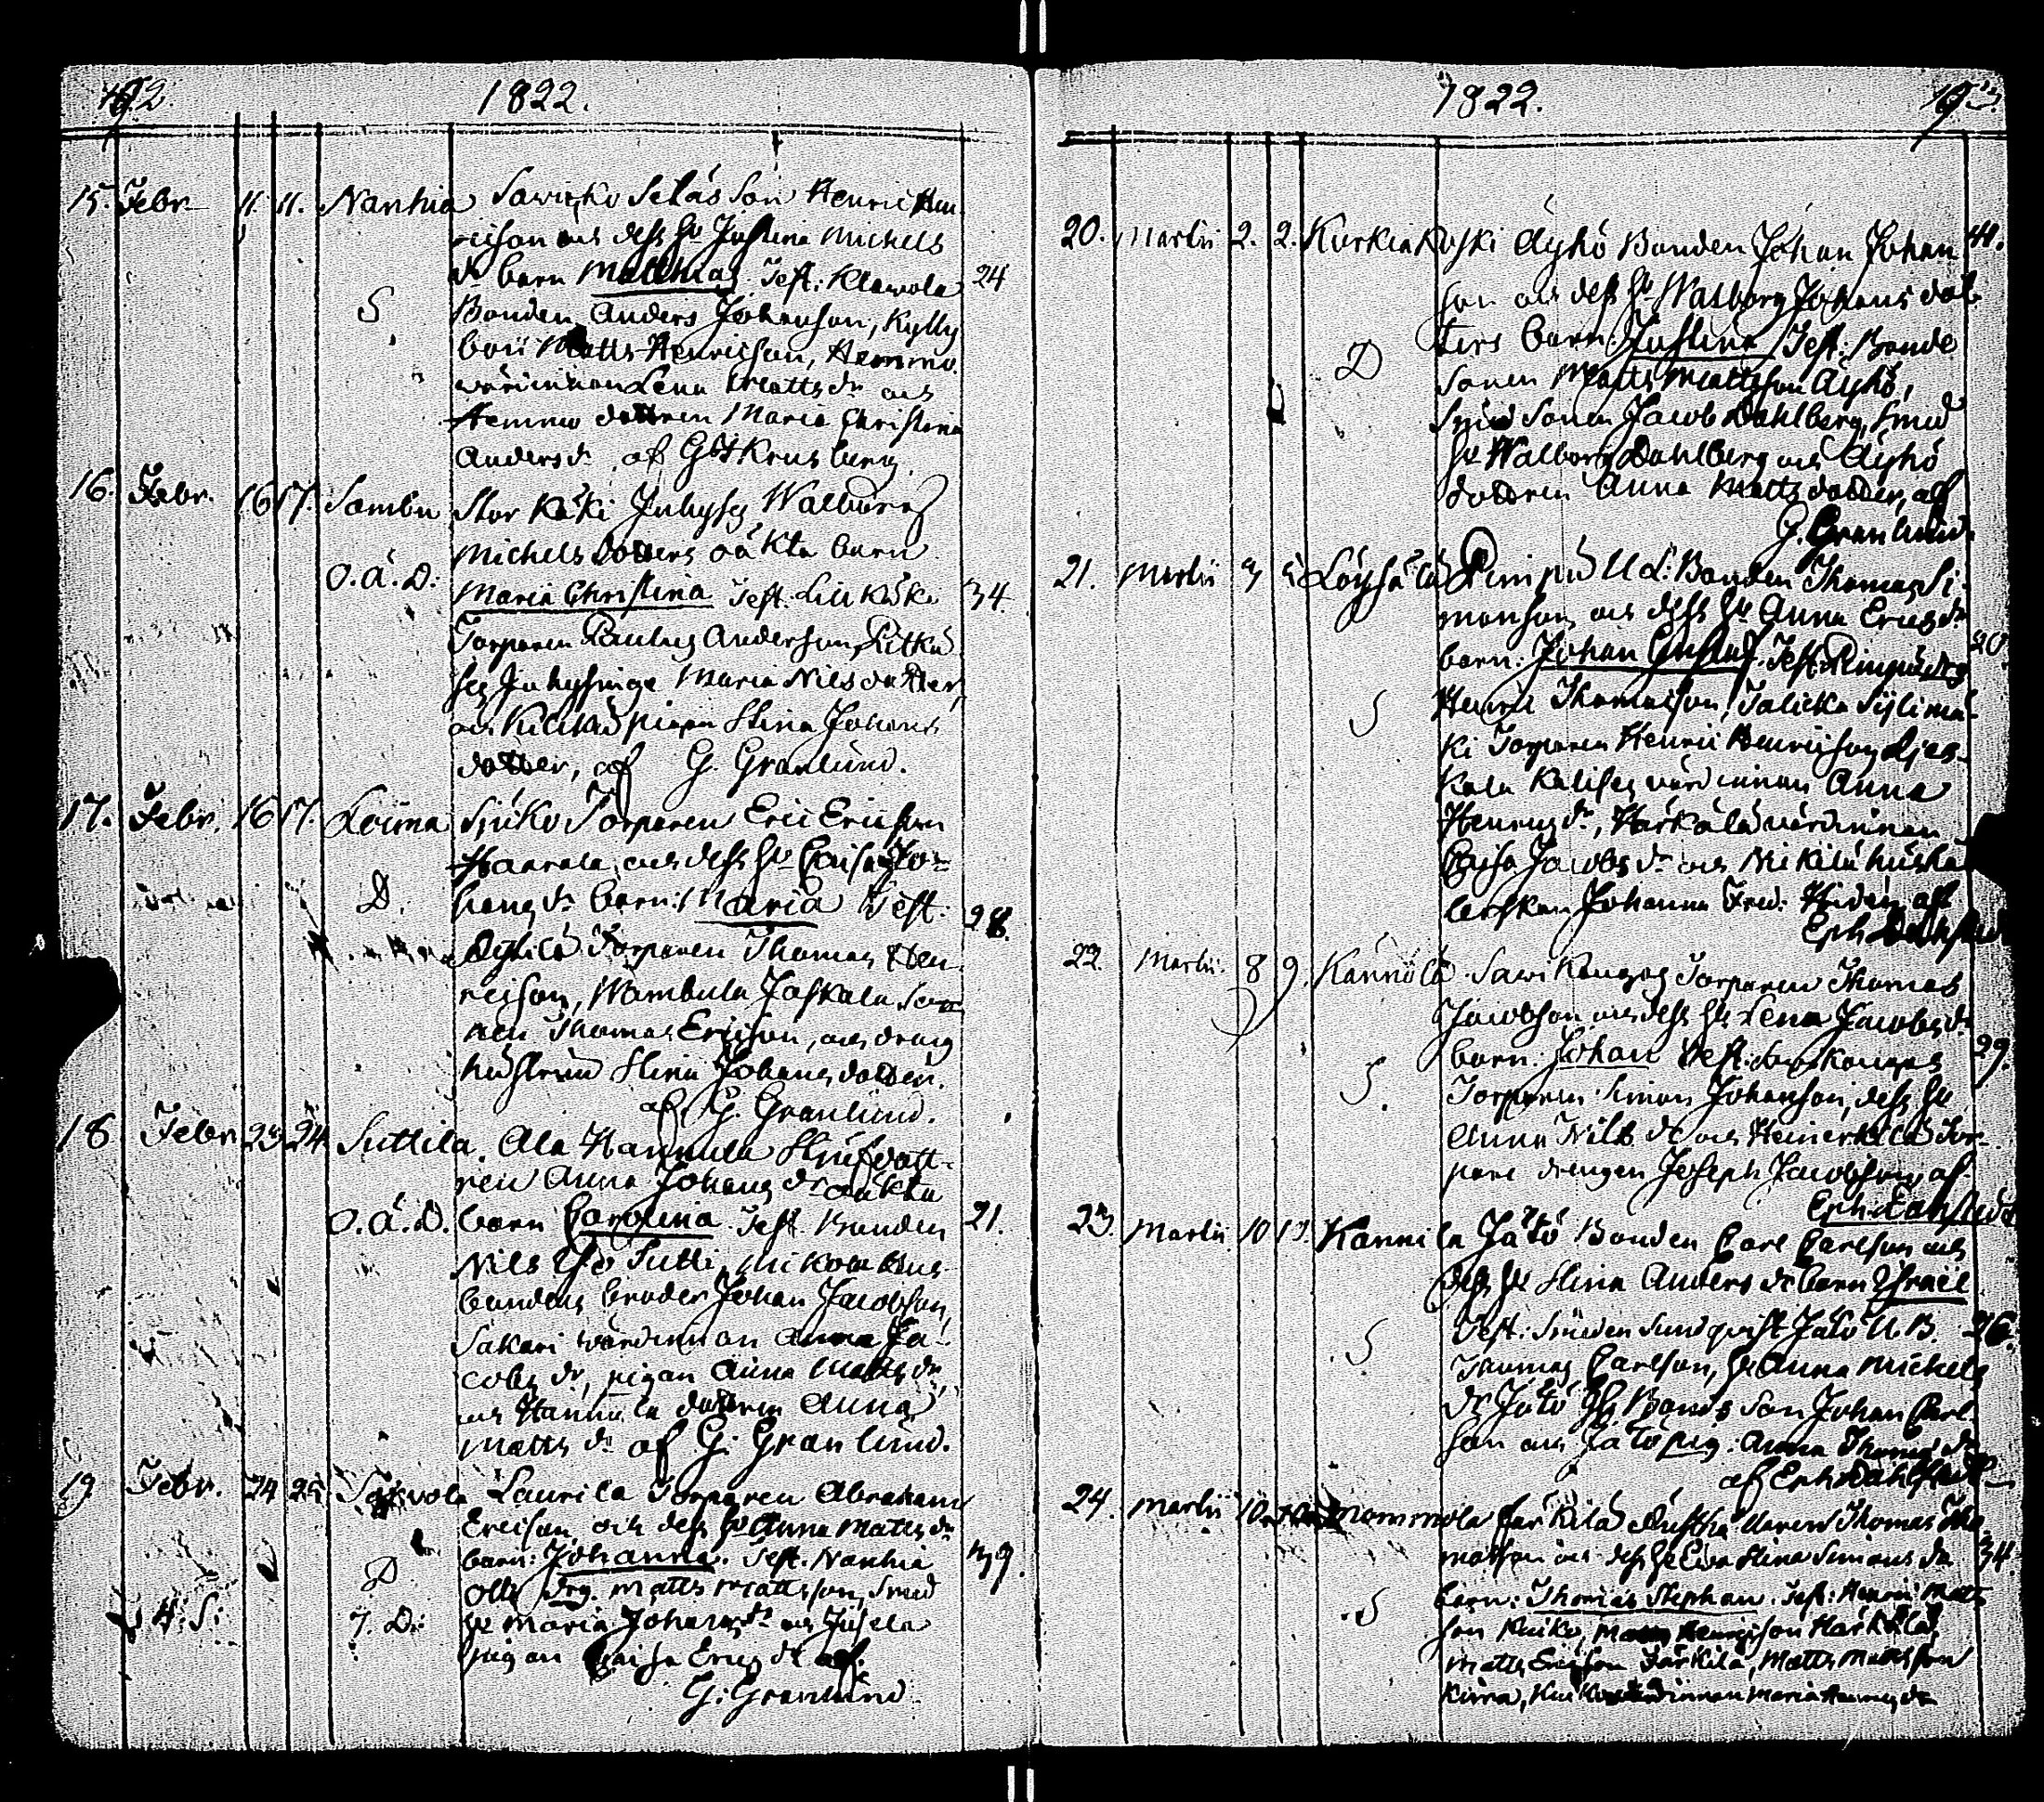 192.
1822.
15. Febr. 11. 11. Nanhia Sawisko Selas Son Henric Hen
ricson och dess H:u Justina Michels
d:r barn Matthias. Test: Klawola 24
S. Bonden Anders Johansson, Kylly
bon Matts Henricson, Hemmo
wärdinnan Lena Matts d:r och
Hemmo dottren Maria Christina
Anders d:r, af G. Krusberg.
16. Febr. 16 17. Sambu Stor Käki Inhyses Walborg
Michels Dotters oäkta barn
O.ä.D: Maria Christina Test. Lill Käki 34.
Torparen Paulus Anderson,
Inhysinge Maria Nilsdotter,
och pigan Stina Johans
dotter, af G. Granlund.
17. Febr. 16 17. Loima Torparen Eric Ericson
Haarala och dess H:u Caisa Jo-
D. hans d:r barn: Maria Test: 28.
Torparen Thomas Hen-
ricson, Wambula Jaskala
Thomas Ericson, och dräng
hustrun Stina Johans dotter.
af G. Granlund.
18 Febr. 23 24 Suttila. Ala Hannula Stiufdott-
ren Anna Johans d:r oäkta
O.ä.D. barn Carolina Test. Bonden 21.
Nils Yso Sutti, Mikola hus-
bondens broder Johan Jacobson,
Sakari wärdinnan Anna Ja-
cobs d:r, pigan Anna Matts d:r,
och Hannula dottren Anna
Matts d:r af G. Granlund.
19 Febr. 24 25 Laurila Torparen Abraham
Ericson och dess H:u Anna Matts d:r
D barn: Johanna. Test. Nanhia 39.
4. S: Olli Drg. Matts Mattsson, Smed
7. D: H:u Maria Johans d:r och Jusela
pigan Caisa Erics d:r af
G. Granlund.
1822. 193
20. Martii 2. 2. Kurkiakoski Äyhö Bonden Johan Johan 41.
son och dess H:u Walborg Johans dot
ters barn: Justina Test: Bonde
D Sonen Matts Mattsson Äyhö,
Smed Sonen Jacob Dahlberg, Smed
H:u Walborg Dahlberg och Äyhö
dottren Anna Matts dotter, af
G. Granlund.
21. Martii 3 5 Löysälä Rimpu Ud: Bonden Thomas Si-
monson och dess H:u Anna Erics d:r
barn: Johan Gustaf. Test: Rimpu drg 20.
S Henric Thomasson,
Torparen Henric Henricson
wärdinnan Anna
Henrics d:r, Härkälä wärdinnan
Caisa Jacobs d:r och Mikilä
Johanna Fred: Hidén, af
Eph. Dahlstedt
22. Martii. 8 9. Kännölä Sawikangas Torparen Thomas
Jacobson och dess H:u Lena Jacobs d:r
barn. Johan Test: Sawikangas 29.
S. Torparen Simon Johansson, dess H:u
Anna Nils d:r och Heinerkilä Tor-
pare drengen Joseph Jacobson, af
Eph. Dahlstedt
23. Martii 10 13. Kannila Jätö Bonden Carl Carlson och
dess H:u Stina Anders d:r barn Israel
S Test: Smeden Sundqvist Jätö U.B. 26.
Thomas Carlson, H:u Anna Michels
d:r Jätö Gl: Bonde Son Johan Carl
son och Jätö pig. Anna Thomas d:r
af Eph Dahlstedt
24. Martii 10. Mommola Särkilä Rusthållaren Thomas Tho
masson och dess H:u Ewa Stina Simons d:r 34.
S barn: Thomas Stephan. Test: Henric Matts
son Kuiko, Matts Henricson Härkälä,
Matts Ericson Särkilä, Matts Mattsson
wärdinnan Maria Henrics d:r